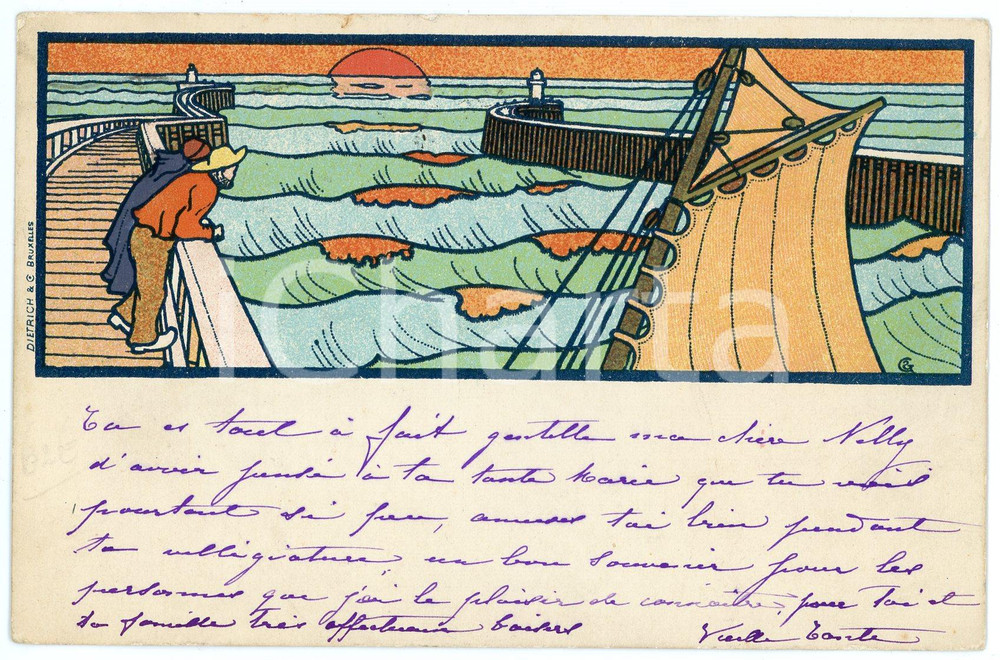 DIETRICH & Cº BRUXELLES
CG
iCharta
Tu es tout à fait gentille ma chère Nelly
d'avoir pensé à ta tante Marie que tu vois
pourtant si peu, amuses toi bien pendant
ta villégiature un bon souvenir pour les
personnes que j'ai le plaisir de connaître, pour toi et
ta famille très affectueux baisers
Vieille Tante